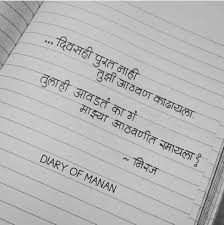 ... दिवसही पुरत नाही
तुझी आठवण काढायला
तुलाही आवडतं का गं
माझ्या आठवणीत रमायला ?
~ निरज
DIARY OF MANAN